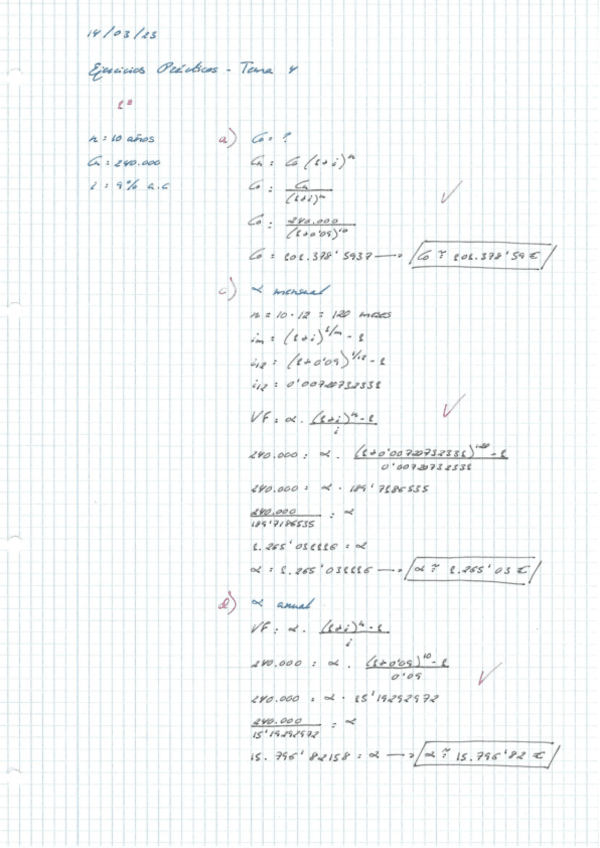 14/03/23
Ejercicios Prácticos - Tema 4
1º
n = 10 años
Cn = 240.000
i = 9% a.a
a) C0 = ?
Cn = C0 (1+i)^n
C0 = Cn / (1+i)^n
C0 = 240.000 / (1+0'09)^10
C0 = 101.378'5937 → C0 ≈ 101.378'59 €
c) α mensual
n = 10·12 = 120 meses
im = (1+i)^1/m - 1
i12 = (1+0'09)^1/12 - 1
i12 = 0'00720732331
VF = α · (1+i)^n - 1 / i
240.000 = α · (1+0'00720732331)^120 - 1 / 0'00720732331
240.000 = α · 189'7186535
240.000 / 189'7186535 = α
1.265'031116 = α
α = 1.265'031116 → α ≈ 1.265'03 €
d) α anual
VF = α · (1+i)^n - 1 / i
240.000 = α · (1+0'09)^10 - 1 / 0'09
240.000 = α · 15'19292972
240.000 / 15'19292972 = α
15.796'82158 = α → α ≈ 15.796'82 €